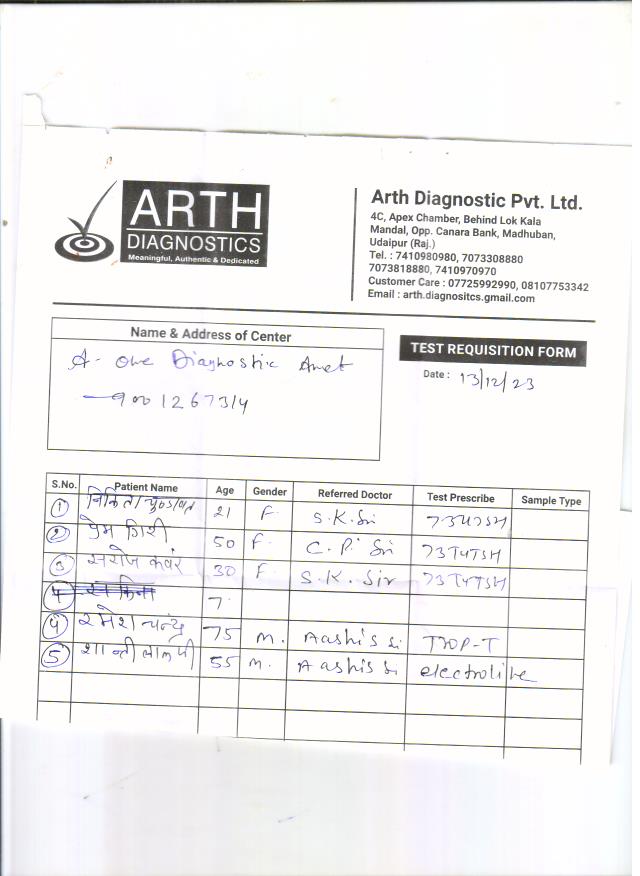 ARTH
DIAGNOSTICS
Meaningful, Authentic & Dedicated
Arth Diagnostic Pvt. Ltd.
4C, Apex Chamber, Behind Lok Kala
Mandal, Opp. Canara Bank, Madhuban,
Udaipur (Raj.)
Tel. : 7410980980, 7073308880
7073818880, 7410970970
Customer Care : 07725992990, 08107753342
Email : arth.diagnositcs.gmail.com
Name & Address of Center
A- one Diagnostic Amet
9001267314
TEST REQUISITION FORM
Date : 13/12/23
S.No. Patient Name Age Gender Referred Doctor Test Prescribe Sample Type
1 21 F. S.K. Sir
2 प्रेम गिरी 50 F. C.P. Sir T3T4TSH
3 सरोज कवंर 30 F. S.K. Sir T3T4TSH
4 7
4 रमेश चन्द्र 75 M. Aashis Si TROP-T
5 शान्तीलाल जी 55 M. Aashis Si electrolite